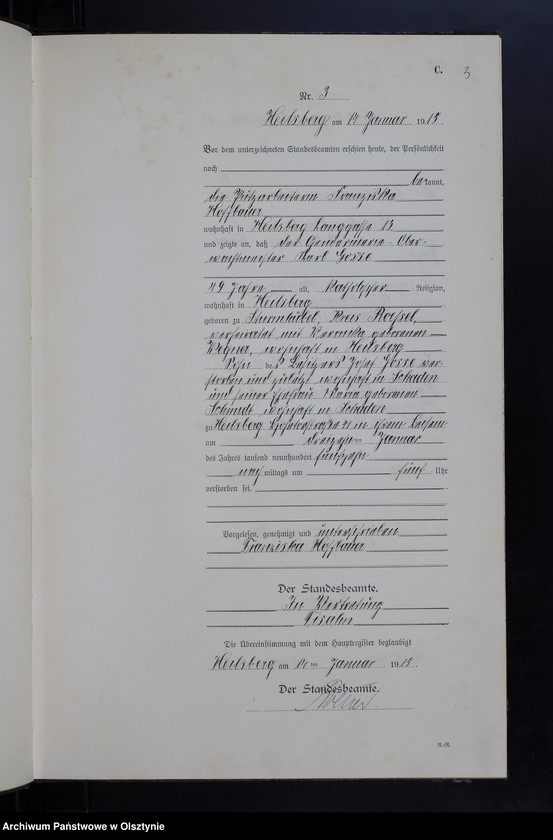 C. 3
Nr. 3
Heilsberg am 14 Januar 1915.
Vor dem unterzeichneten Standesbeamten erschien heute, der Persönlichkeit
nach
bekannt,
die Putzarbeiterin Franziska
Hoffbauer
wohnhaft in Heilsberg Langgasse 13
und zeigte an, daß der Gendarmerie-Ober-
wachtmeister Karl Josse
49 Jahre alt, katholischer Religion,
wohnhaft in Heilsberg
geboren zu Sturmhübel, Kreis Roessel,
verheiratet mit Veronika geborenen
Wegner, wohnhaft in Heilsberg
Sohn des Besitzers Josef Josse ver-
storben und zuletzt wohnhaft in Schaden
und seiner Ehefrau Maria geborenen
Schmidt wohnhaft in Schaden
zu Heilsberg in
am dreizehn Januar
des Jahres tausend neunhundert fünfzehn
nachmittags um fünf Uhr
verstorben sei.
Vorgelesen, genehmigt und unterschrieben
Franziska Hoffbauer
Der Standesbeamte.
In Vertretung
Die Übereinstimmung mit dem Hauptregister beglaubigt
Heilsberg am 14 ten Januar 1915.
Der Standesbeamte.
Archiwum Państwowe w Olsztynie